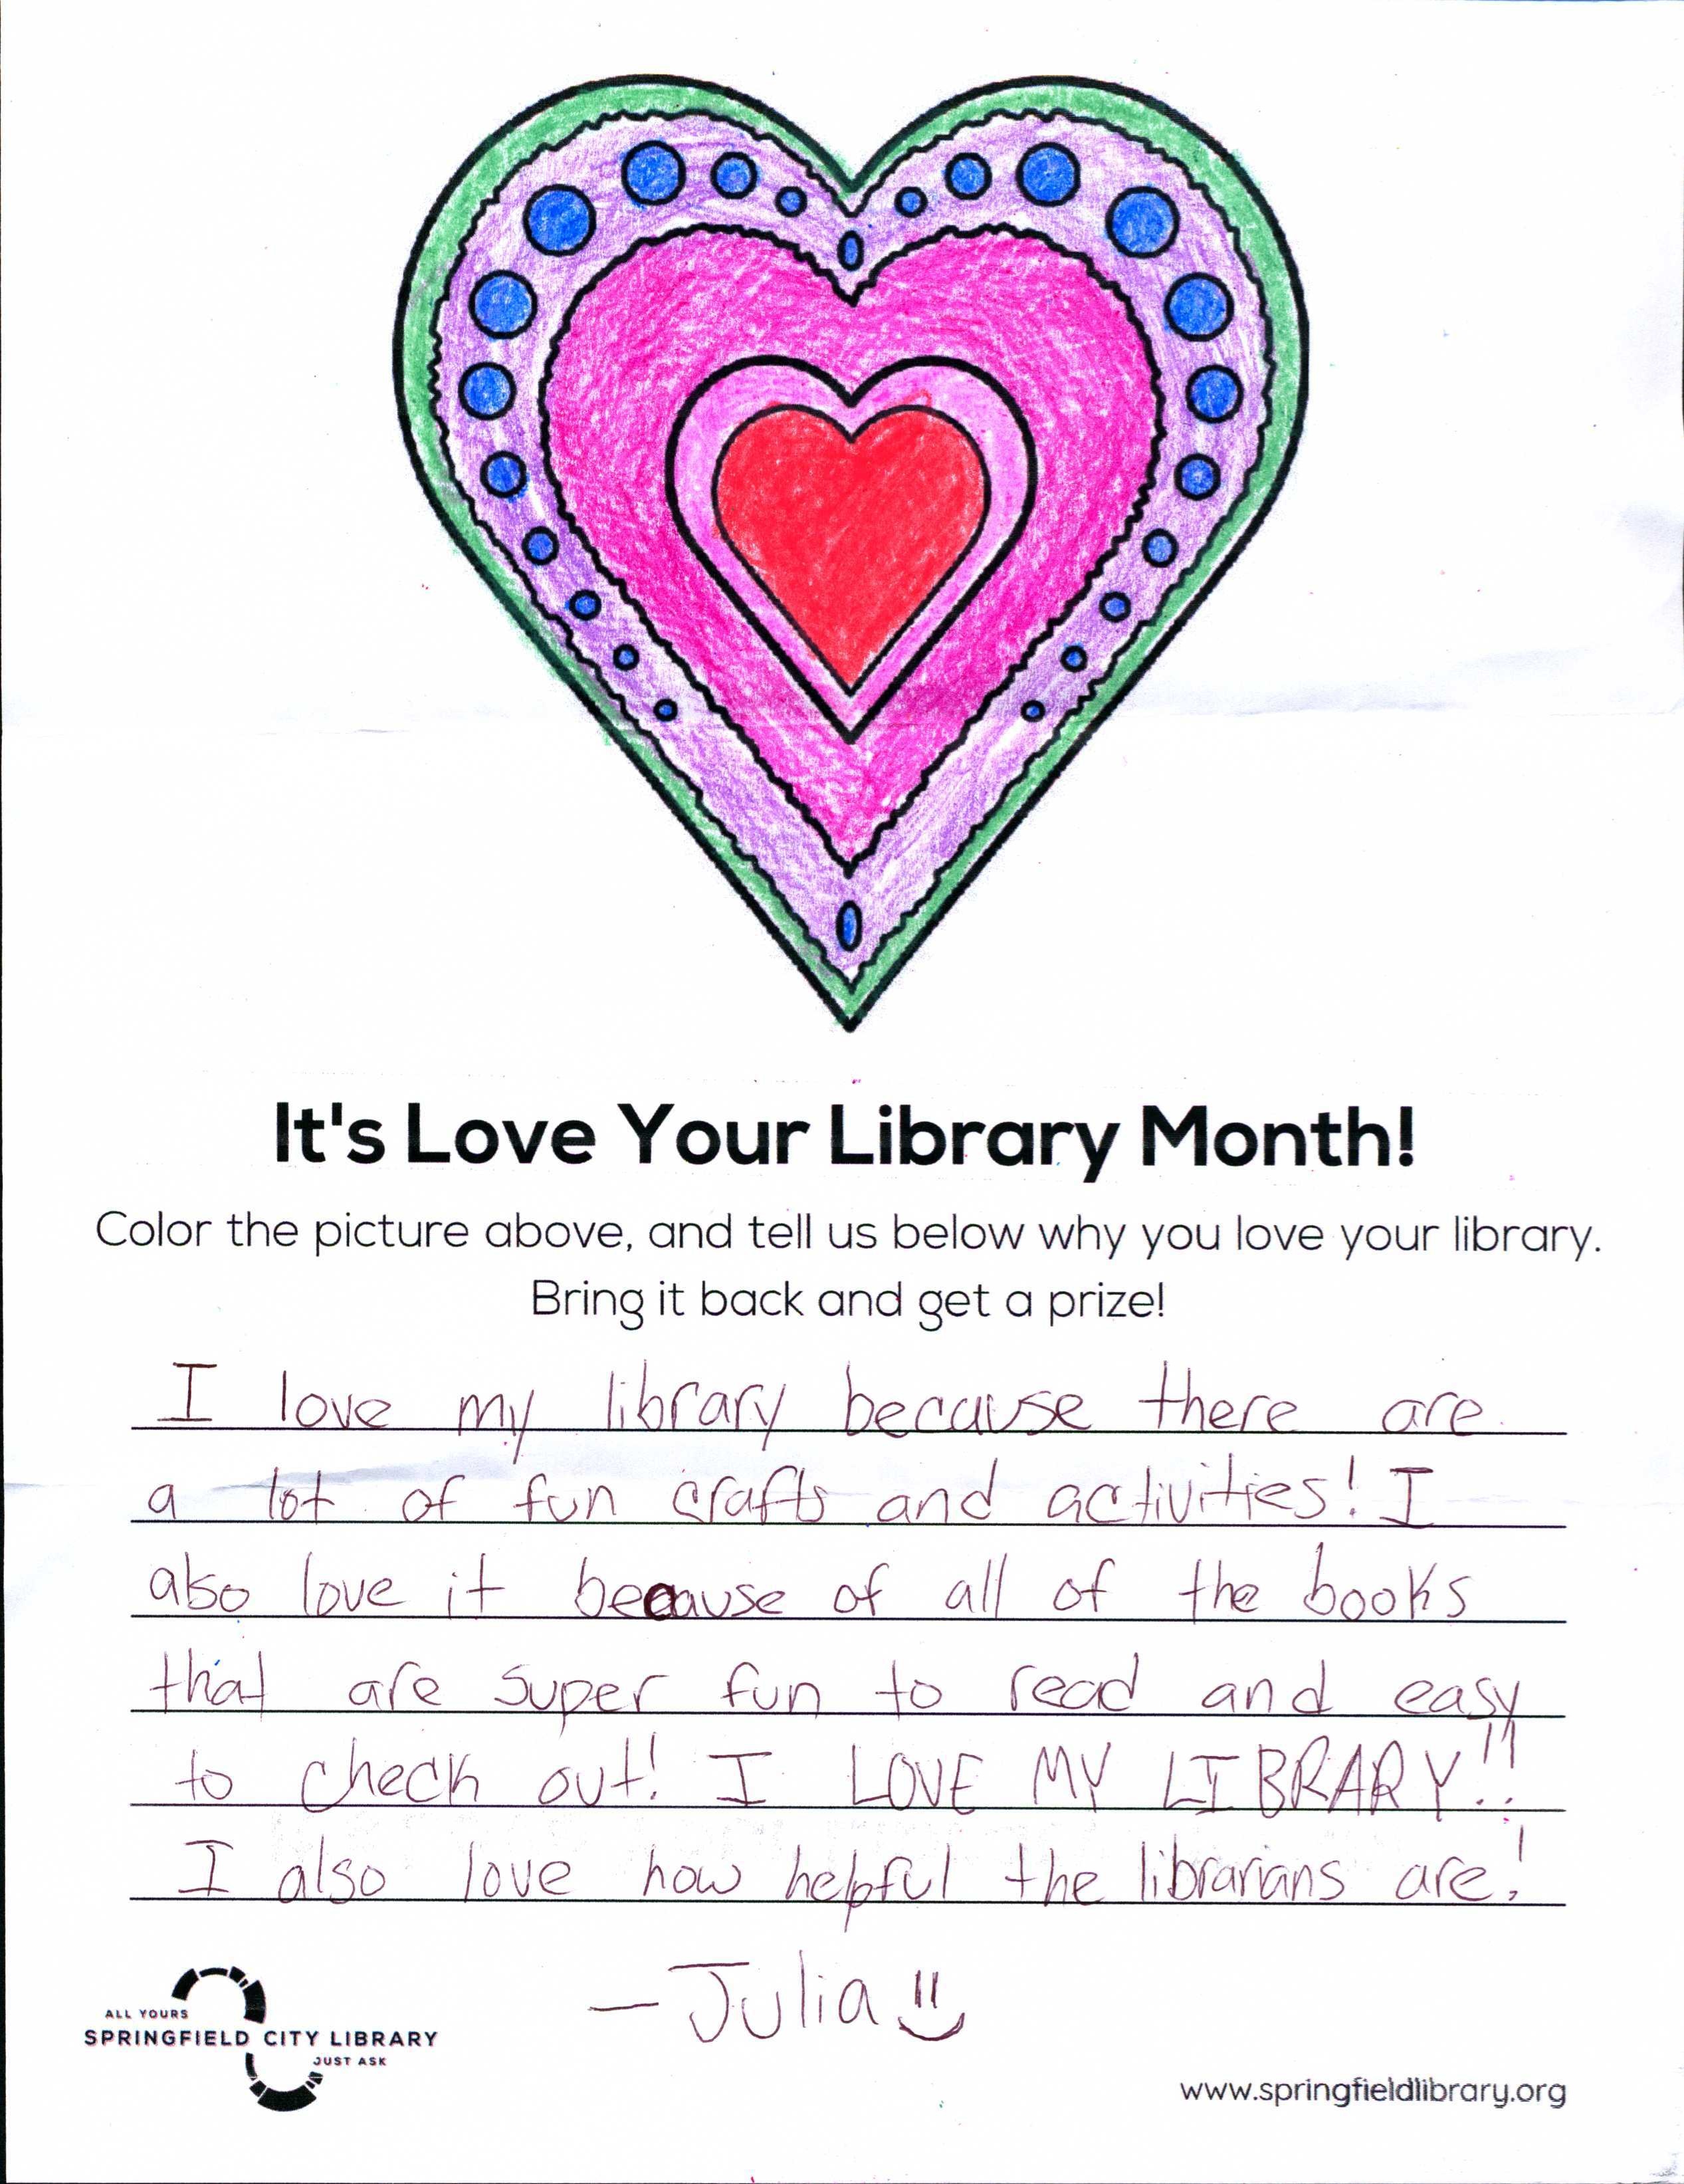 It's Love Your Library Month!
Color the picture above, and tell us below why you love your library.
Bring it back and get a prize!
I love my library because there are
a lot of fun crafts and activities! I
also love it because of all of the books
that are super fun to read and easy
to check out! I LOVE MY LIBRARY!!
I also love how helpful the librarians are!
— Julia
ALL YOURS
SPRINGFIELD CITY LIBRARY
JUST ASK
www.springfieldlibrary.org